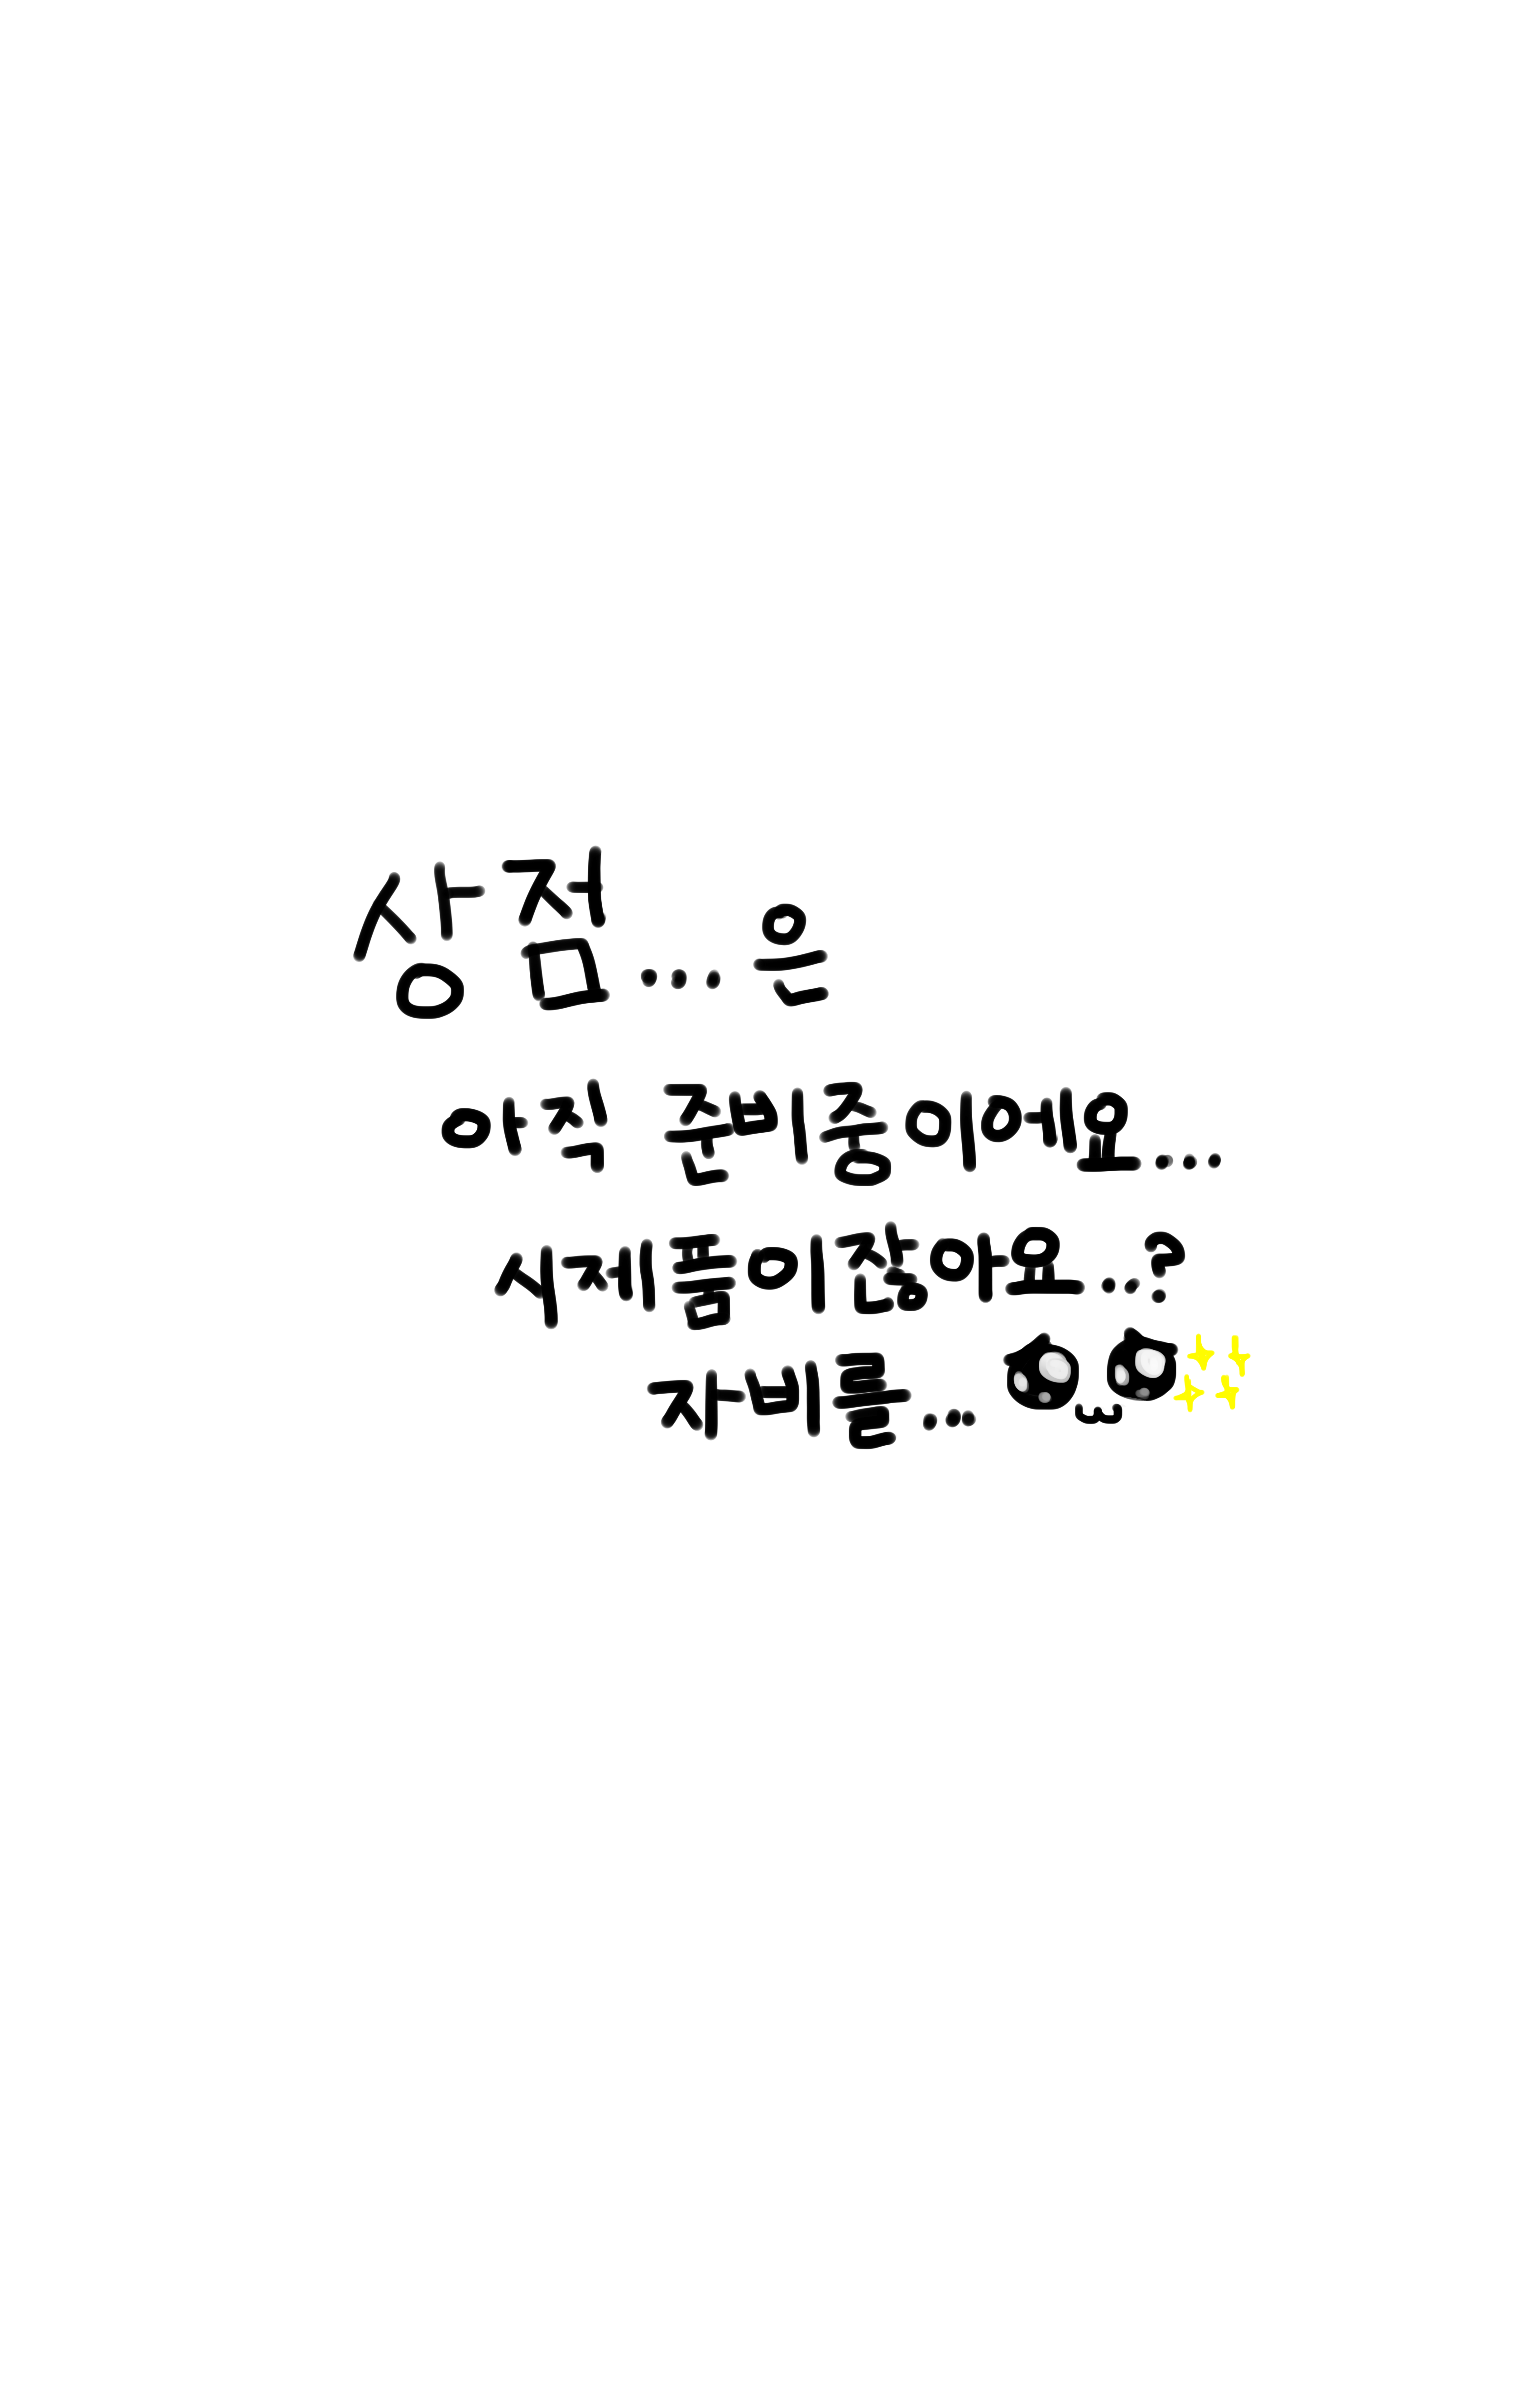 상점...은
아직 준비중이에요...
시제품이잖아요..?
자비를...